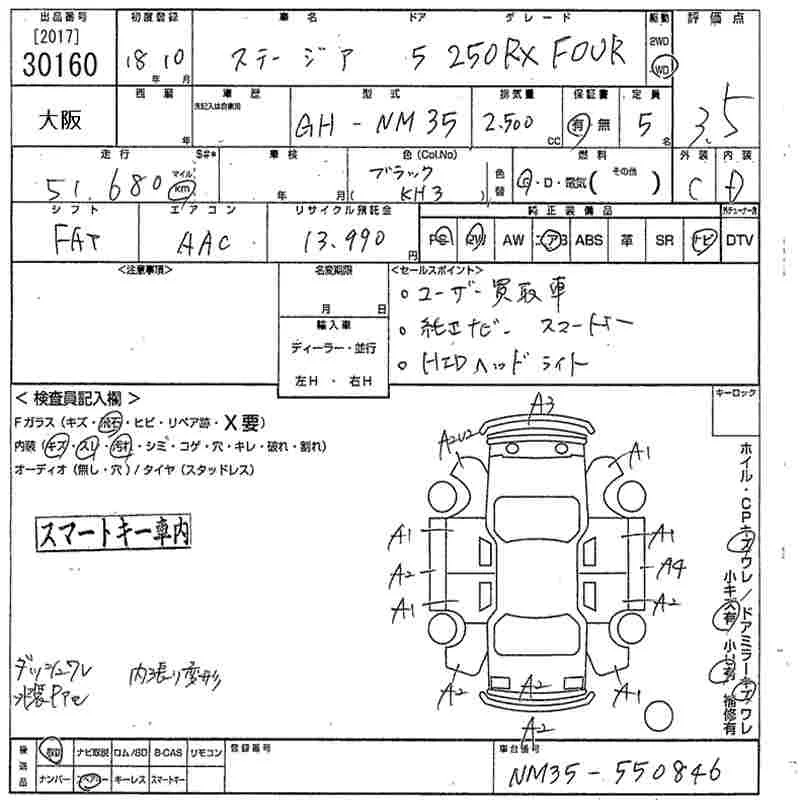 出品番号 初度登録 車名 ドア グレード 駆動 評価点
[2017]
30160 18年 10月 ステージア 5 250RX FOUR 2WD 4WD 3.5
西暦 車歴 型式 排気量 保証書 定員
大阪 年 GH-NM35 2.500 CC 有・無 5 名
走行 S#* 車検 色(Col.No) 燃料 外装 内装
51,680 マイル km 年 月 ブラック ( KH3 ) 色替 G・D・電気( その他 ) C D
シフト エアコン リサイクル預託金 純正装備品
FAT AAC 13.990 円 PS PW AW エアB ABS 革 SR ナビ DTV
<注意事項> 名変期限 <セールスポイント>
月 日 ・ユーザー買取車
輸入車 ・純正ナビー スマートキー
ディーラー・並行 ・HIDヘッドライト
左H ・ 右H
< 検査員記入欄 > キーロック
Fガラス (キズ・飛石・ヒビ・リペア跡・X要)
内装 (キズ・スレ・汚れ・シミ・コゲ・穴・キレ・破れ・割れ)
オーディオ (無し・穴) / タイヤ (スタッドレス)
スマートキー車内
A3
A2U2 A1
A1 A1
A2 A4
A1 A2
A2 A2 A1
A2
ホイル・CPキズ ワレ / ドアミラーキズ ワレ
小キズ有 小凹有 補修有
ダッシュワレ 内張り変形
後送品 取説 ナビ取説 ロム/SD B-CAS リモコン 登録番号 車台番号
ナンバー スペアキー キーレス スマートキー NM35-550846